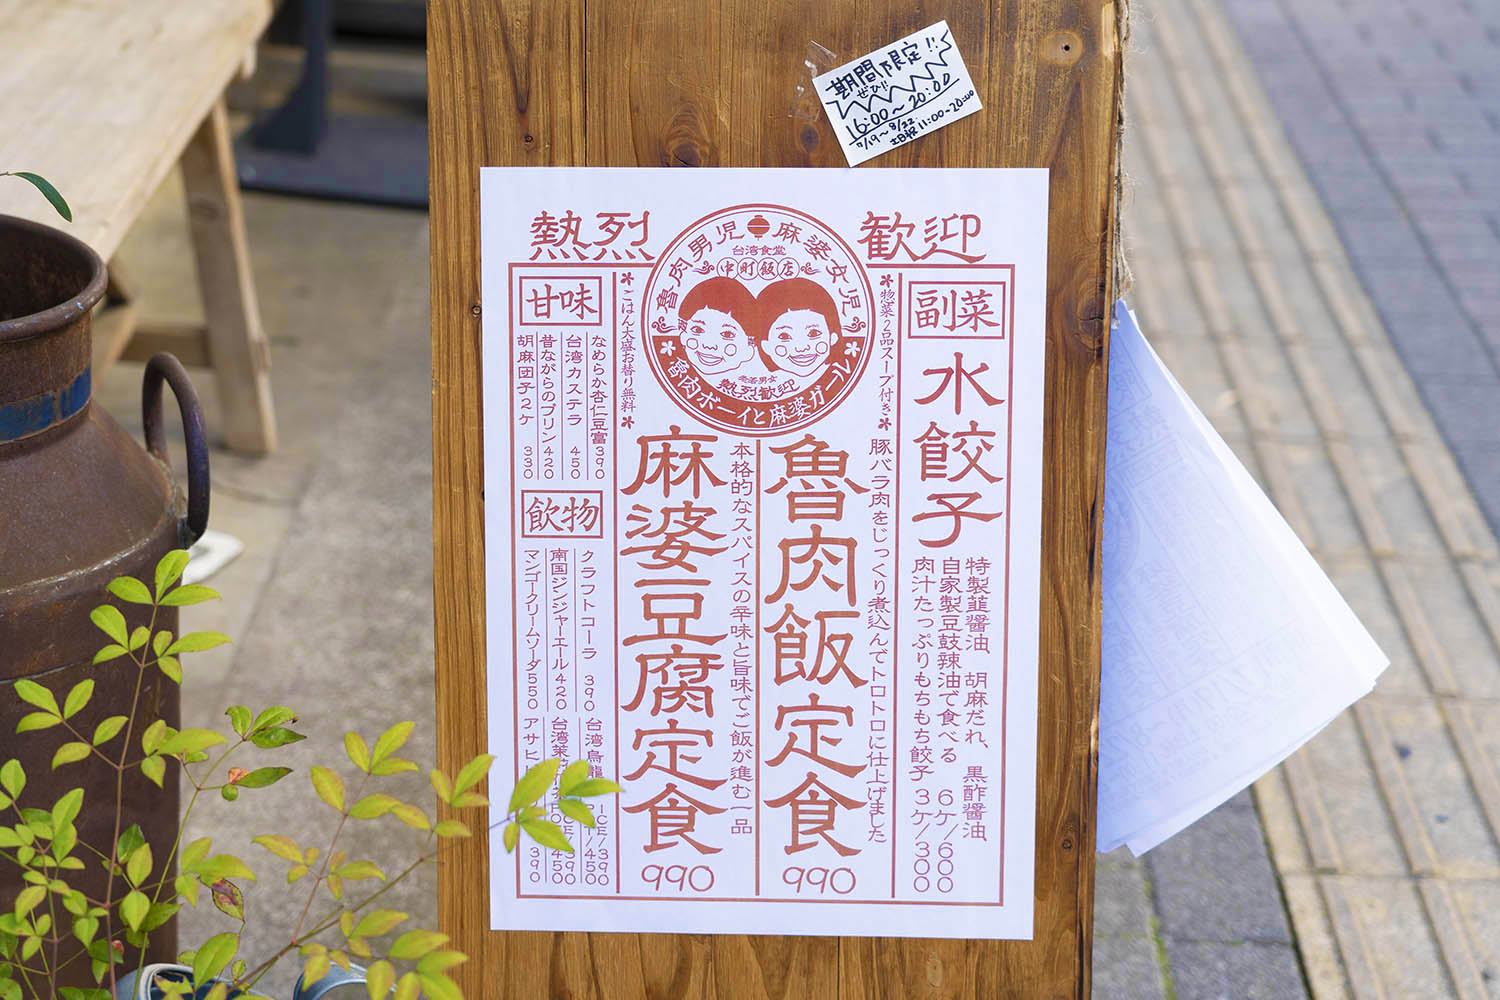 期間限定!!
ぜひ!!
16:00〜20:00
7/19〜8/22
土日祝 11:00-20:00
熱烈
歓迎
魯肉男児
麻婆女児
台湾食堂
中町飯店
老若男女
熱烈歓迎
魯肉ボーイと麻婆ガール
副菜
水餃子
特製韮醤油、胡麻だれ、黒酢醤油、
自家製豆鼓辣油で食べる 6ケ/600
肉汁たっぷりもちもち餃子 3ケ/300
*惣菜2品スープ付き*
豚バラ肉をじっくり煮込んでトロトロに仕上げました
魯肉飯定食
990
本格的なスパイスの辛味と旨味でご飯が進む一品
麻婆豆腐定食
990
*ごはん大盛お替り無料*
甘味
なめらか杏仁豆富390
台湾カステラ 450
昔ながらのプリン420
胡麻団子2ケ 330
飲物
クラフトコーラ 390
南国ジンジャーエール420
マンゴークリームソーダ550
台湾烏龍 ICE/390
450
台湾茉 ICE/390
450
アサヒ 390